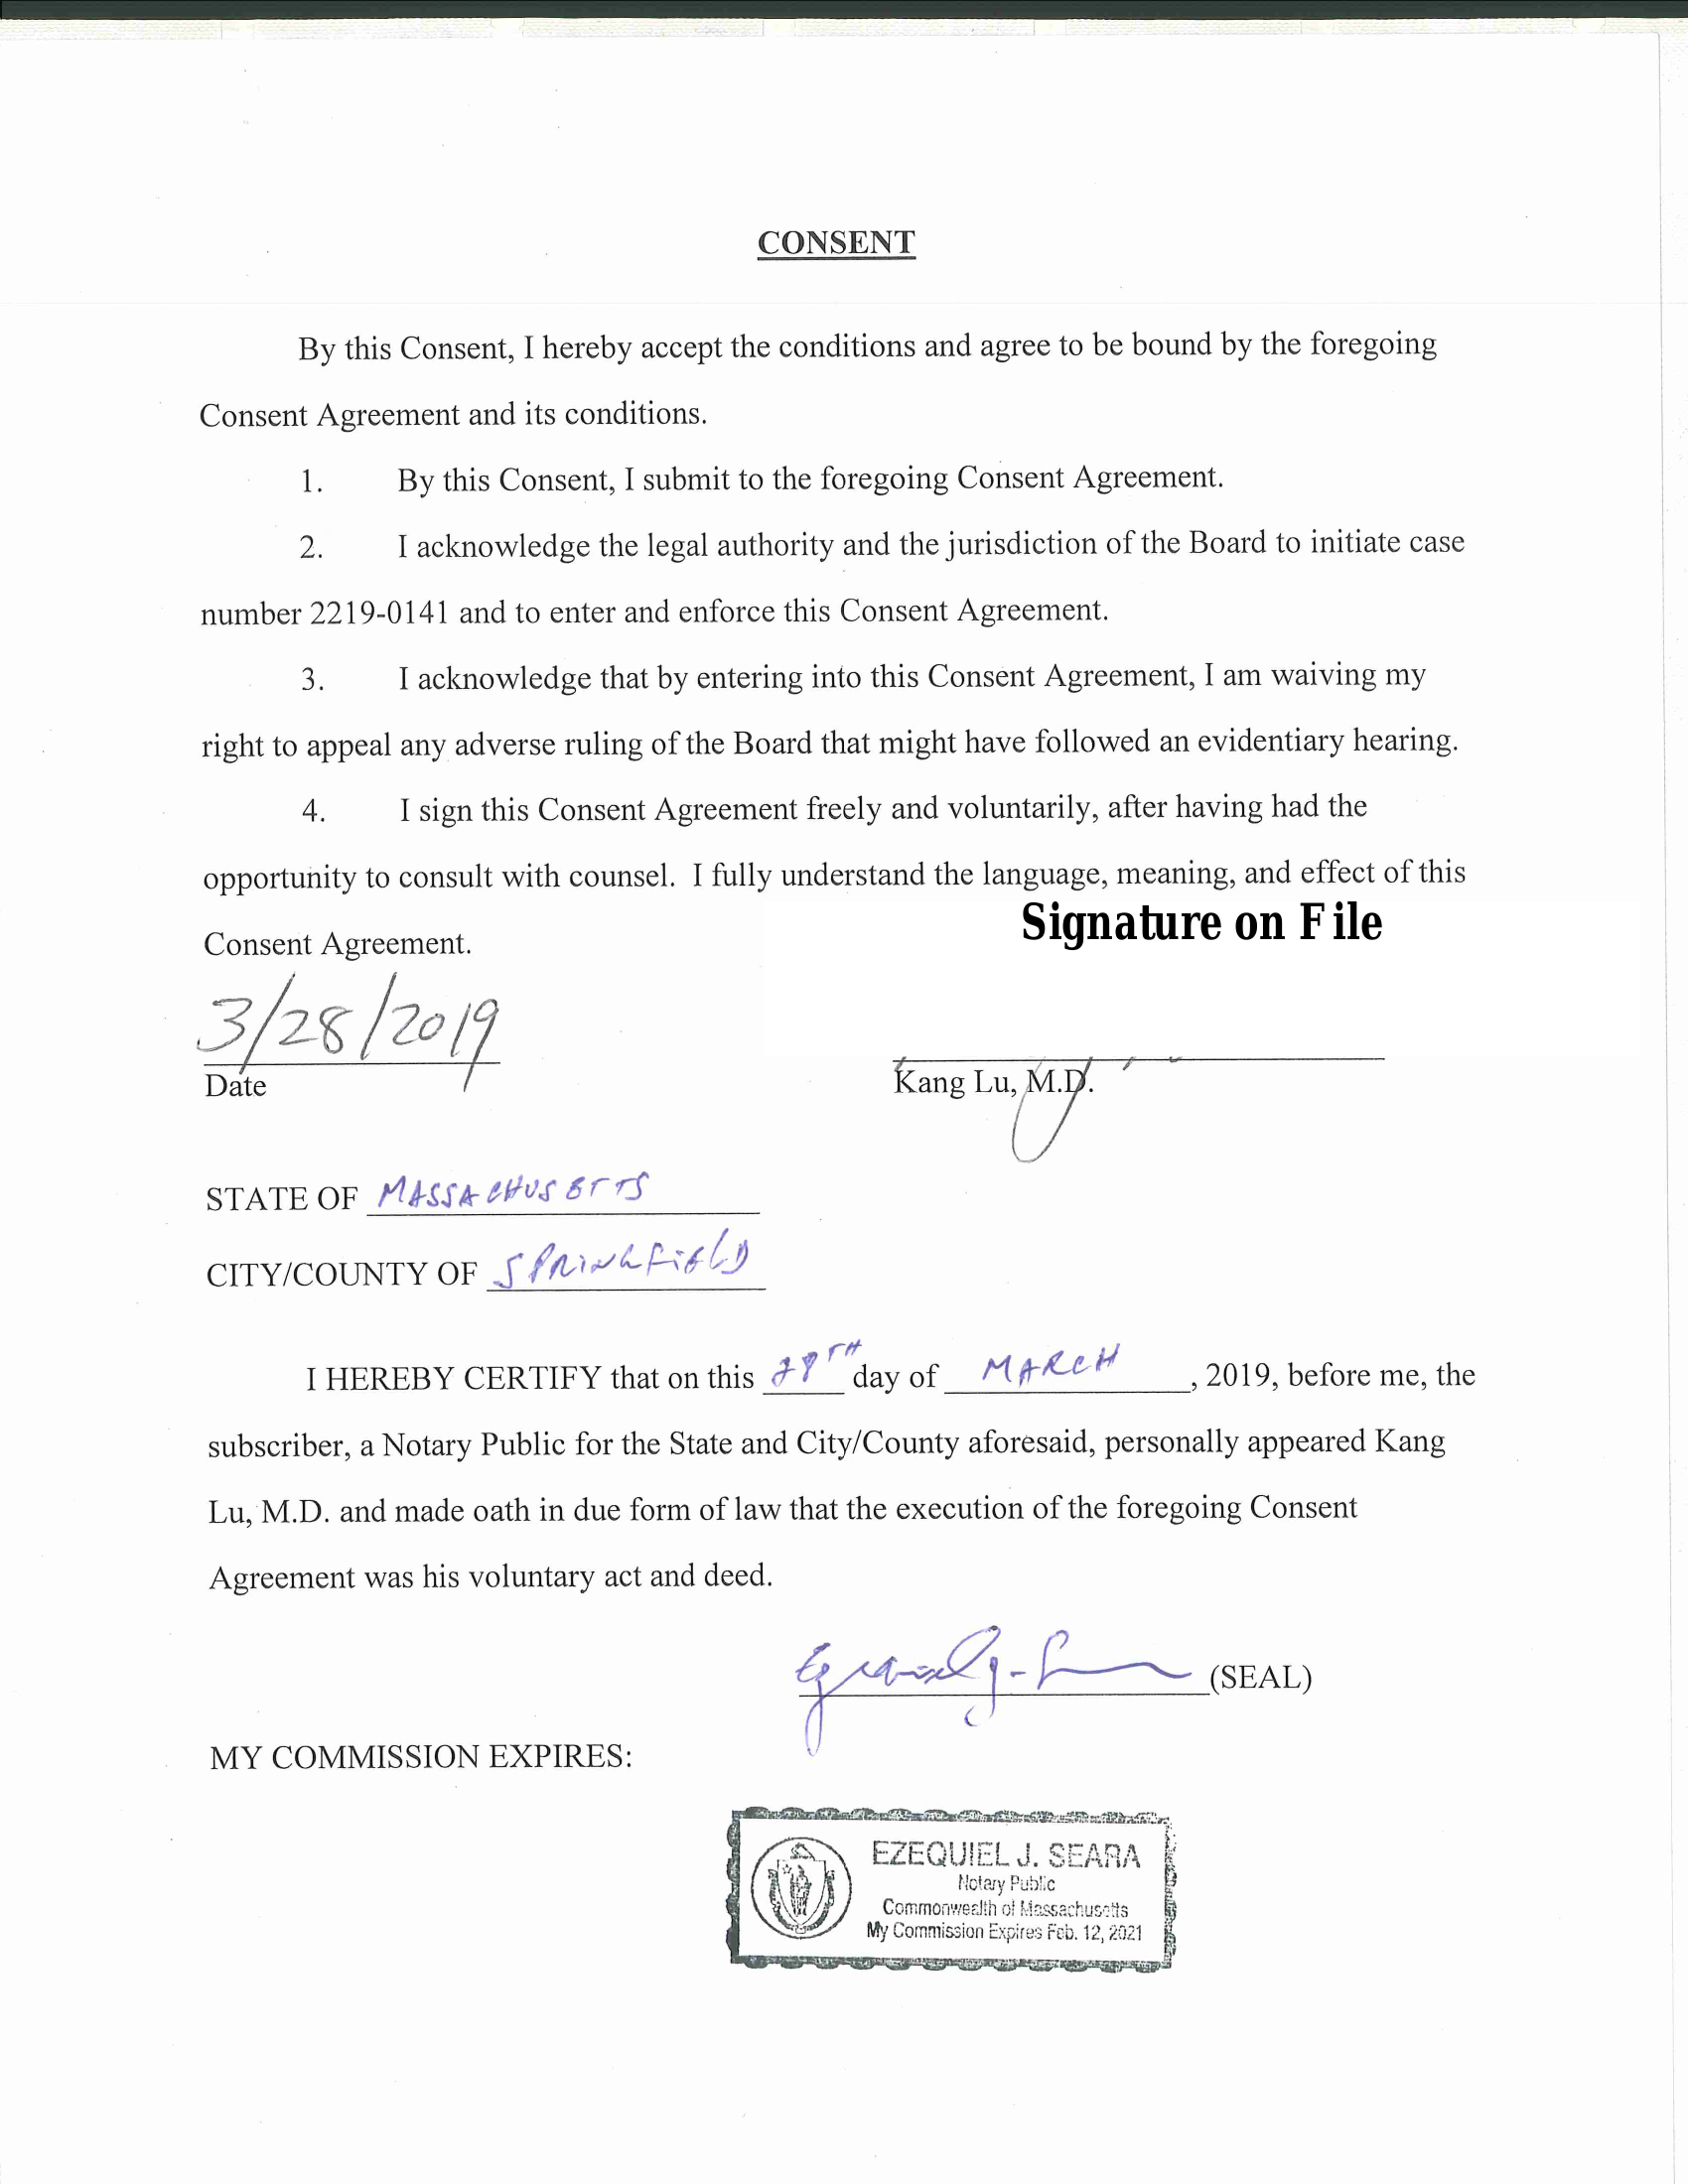 CONSENT
By this Consent, I hereby accept the conditions and agree to be bound by the foregoing
Consent Agreement and its conditions.
1. By this Consent, I submit to the foregoing Consent Agreement.
2. I acknowledge the legal authority and the jurisdiction of the Board to initiate case
number 2219-0141 and to enter and enforce this Consent Agreement.
3. I acknowledge that by entering into this Consent Agreement, I am waiving my
right to appeal any adverse ruling of the Board that might have followed an evidentiary hearing.
4. I sign this Consent Agreement freely and voluntarily, after having had the
opportunity to consult with counsel. I fully understand the language, meaning, and effect of this
Consent Agreement.
Signature on File
3/28/2019
Date
Kang Lu, M.D.
STATE OF MASSACHUSETTS
CITY/COUNTY OF SPRINGFIELD
I HEREBY CERTIFY that on this 28TH day of MARCH, 2019, before me, the
subscriber, a Notary Public for the State and City/County aforesaid, personally appeared Kang
Lu, M.D. and made oath in due form of law that the execution of the foregoing Consent
Agreement was his voluntary act and deed.
(SEAL)
MY COMMISSION EXPIRES:
EZEQUIEL J. SEARA
Notary Public
Commonwealth of Massachusetts
My Commission Expires Feb. 12, 2021